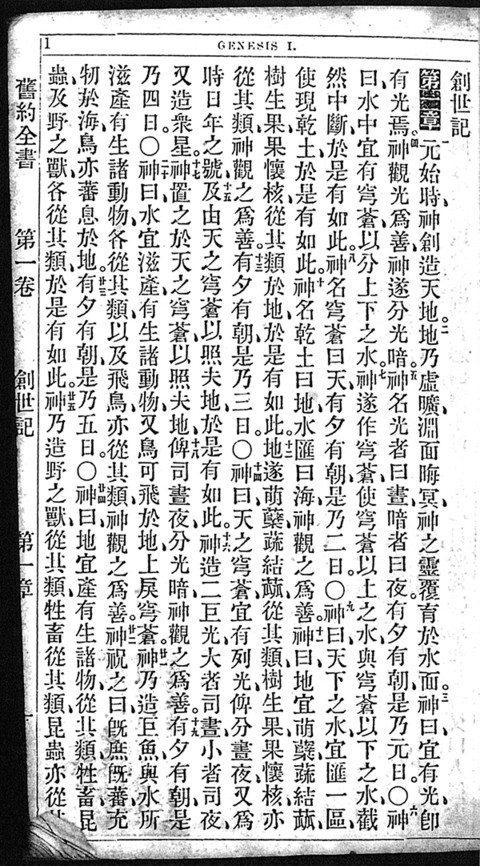 1
GENESIS I.
創世記
第一章 一元始時神創造天地、二地乃虛曠、淵面晦冥、神之靈覆育於水面、三神曰、宜有光、卽
有光焉、四神觀光爲善、神遂分光暗、五神名光者曰晝、暗者曰夜、有夕有朝、是乃元日。〇六神
曰、水中宜有穹蒼、以分上下之水、七神遂作穹蒼、使穹蒼以上之水、與穹蒼以下之水、截
然中斷、於是有如此、八神名穹蒼曰天、有夕有朝、是乃二日。〇九神曰、天下之水宜匯一區、
使現乾土、於是有如此、十神名乾土曰地、水匯曰海、神觀之爲善、十一神曰、地宜萌蘖、蔬結蓏、
樹生果、果懷核、從其類於地、於是有如此、十二地遂萌蘖、蔬結蓏、從其類、樹生果、果懷核、亦
從其類、神觀之爲善、十三有夕有朝、是乃三日。〇十四神曰、天之穹蒼、宜有列光、俾分晝夜、又爲
時日年之號、十五及由天之穹蒼、以照夫地、於是有如此、十六神造二巨光、大者司晝、小者司夜、
又造衆星、十七神置之於天之穹蒼、以照夫地、十八俾司晝夜、分光暗、神觀之爲善、十九有夕有朝、是
乃四日。〇二十神曰、水宜滋產有生諸動物、又鳥可飛於地上戾穹蒼、廿一神乃造巨魚、與水所
滋產有生諸動物、各從其類、以及飛鳥、亦從其類、神觀之爲善、廿二神祝之曰、旣庶旣蕃、充
牣於海、鳥亦蕃息於地、廿三有夕有朝、是乃五日。〇廿四神曰、地宜產有生諸物、從其類、牲畜昆
蟲及野之獸、各從其類、於是有如此、廿五神乃造野之獸從其類、牲畜從其類、昆蟲亦從
舊約全書 第一卷 創世記 第一章